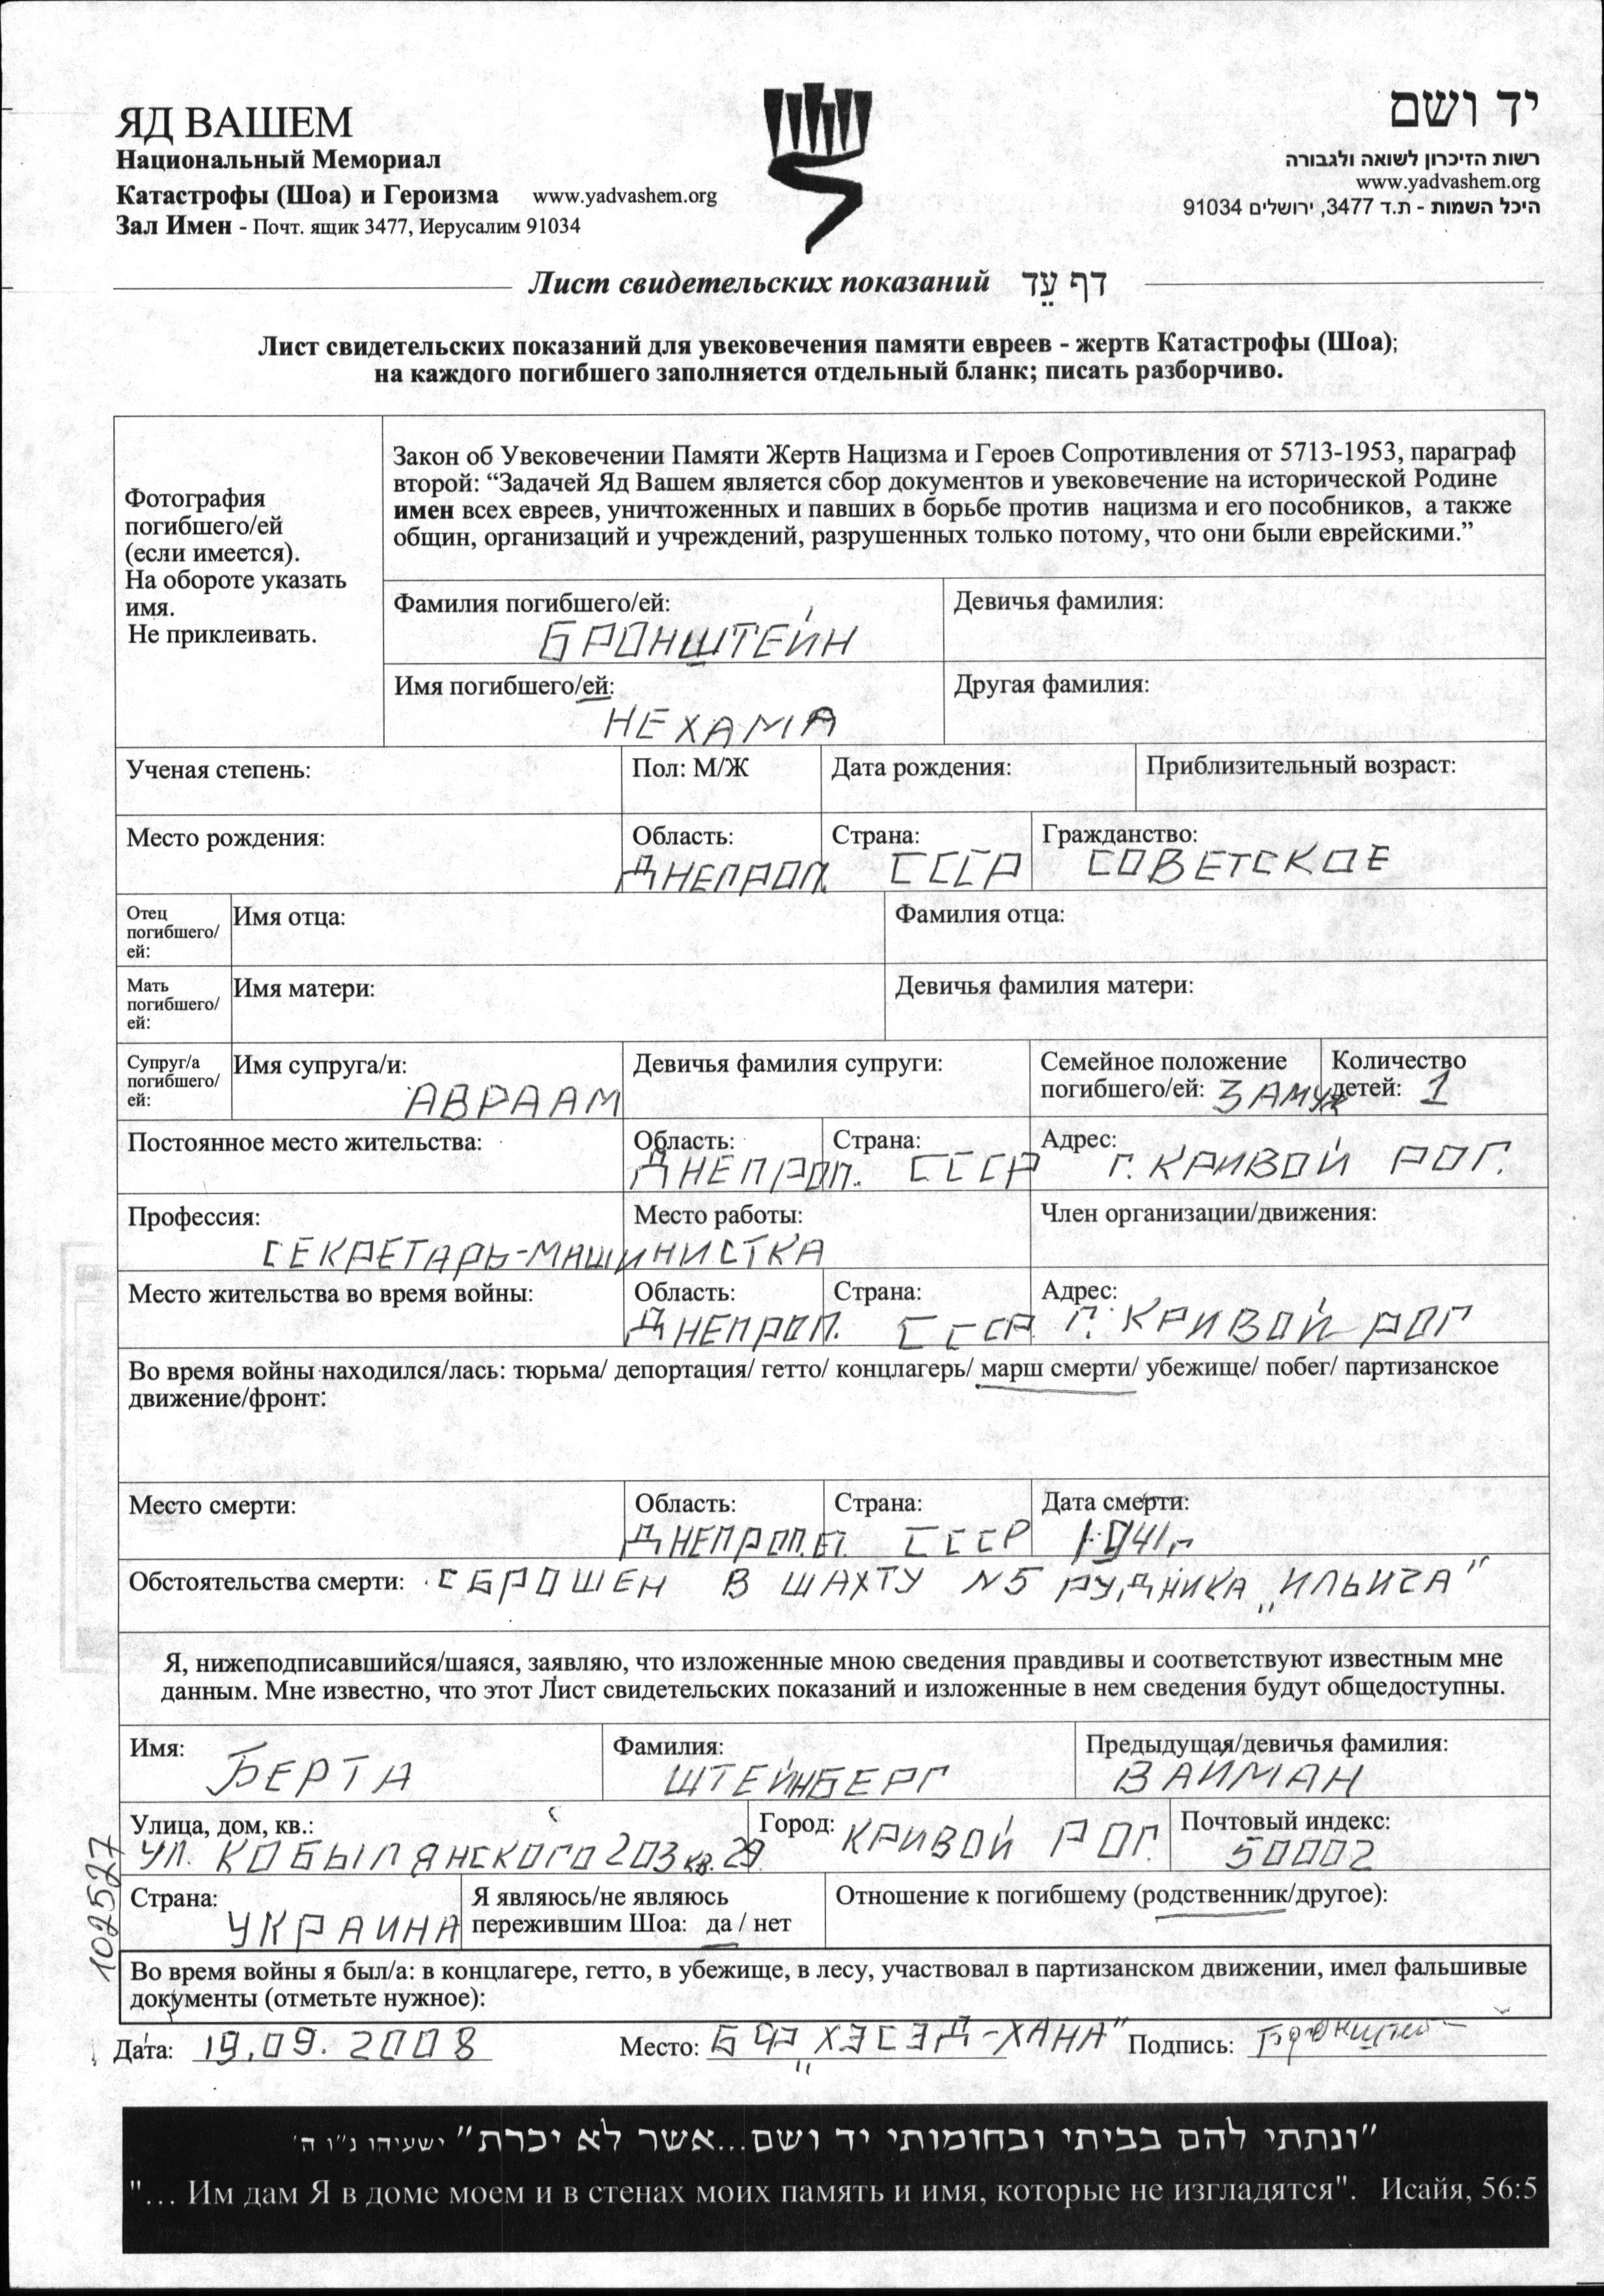 ЯД ВАШЕМ
Национальный Мемориал
Катастрофы (Шоа) и Героизма www.yadvashem.org
Зал Имен - Почт. ящик 3477, Иерусалим 91034
יד ושם
רשות הזיכרון לשואה ולגבורה
www.yadvashem.org
היכל השמות - ת.ד 3477, ירושלים 91034
Лист свидетельских показаний דף עֵד
Лист свидетельских показаний для увековечения памяти евреев - жертв Катастрофы (Шоа);
на каждого погибшего заполняется отдельный бланк; писать разборчиво.
Фотография
погибшего/ей
(если имеется).
На обороте указать
имя.
Не приклеивать.
Закон об Увековечении Памяти Жертв Нацизма и Героев Сопротивления от 5713-1953, параграф
второй: “Задачей Яд Вашем является сбор документов и увековечение на исторической Родине
имен всех евреев, уничтоженных и павших в борьбе против нацизма и его пособников, а также
общин, организаций и учреждений, разрушенных только потому, что они были еврейскими.”
Фамилия погибшего/ей: Девичья фамилия:
БРОНШТЕЙН
Имя погибшего/ей: Другая фамилия:
НЕХАМА
Ученая степень: Пол: М/Ж Дата рождения: Приблизительный возраст:
Место рождения: Область: Страна: Гражданство:
ДНЕПРОП. СССР СОВЕТСКОЕ
Отец
погибшего/
ей:
Имя отца: Фамилия отца:
Мать
погибшего/
ей:
Имя матери: Девичья фамилия матери:
Супруг/а
погибшего/
ей:
Имя супруга/и: Девичья фамилия супруги: Семейное положение Количество
АВРААМ погибшего/ей: ЗАМУЖ детей: 1
Постоянное место жительства: Область: Страна: Адрес:
ДНЕПРОП. СССР Г. КРИВОЙ РОГ.
Профессия: Место работы: Член организации/движения:
СЕКРЕТАРЬ-МАШИНИСТКА
Место жительства во время войны: Область: Страна: Адрес:
ДНЕПРОП. СССР Г. КРИВОЙ РОГ
Во время войны находился/лась: тюрьма/ депортация/ гетто/ концлагерь/ марш смерти/ убежище/ побег/ партизанское
движение/фронт:
Место смерти: Область: Страна: Дата смерти:
СССР 1941г
Обстоятельства смерти: СБРОШЕН В ШАХТУ №5 РУДНИКА „ИЛЬИЧА”
Я, нижеподписавшийся/шаяся, заявляю, что изложенные мною сведения правдивы и соответствуют известным мне
данным. Мне известно, что этот Лист свидетельских показаний и изложенные в нем сведения будут общедоступны.
Имя: Фамилия: Предыдущая/девичья фамилия:
БЕРТА ШТЕЙНБЕРГ ВАЙМАН
Улица, дом, кв.: Город: КРИВОЙ РОГ. Почтовый индекс:
УЛ. КОБЫЛЯНСКОГО 203 кв. 29. 50002
Страна: Я являюсь/не являюсь Отношение к погибшему (родственник/другое):
УКРАИНА пережившим Шоа: да / нет
102527
Во время войны я был/а: в концлагере, гетто, в убежище, в лесу, участвовал в партизанском движении, имел фальшивые
документы (отметьте нужное):
Дата: 19.09.2008 Место: БФ „ХЭСЭД-ХАНА” Подпись:
"ונתתי להם בביתי ובחומותי יד ושם...אשר לא יכרת" ישעיהו נ"ו ה'
"... Им дам Я в доме моем и в стенах моих память и имя, которые не изгладятся". Исайя, 56:5